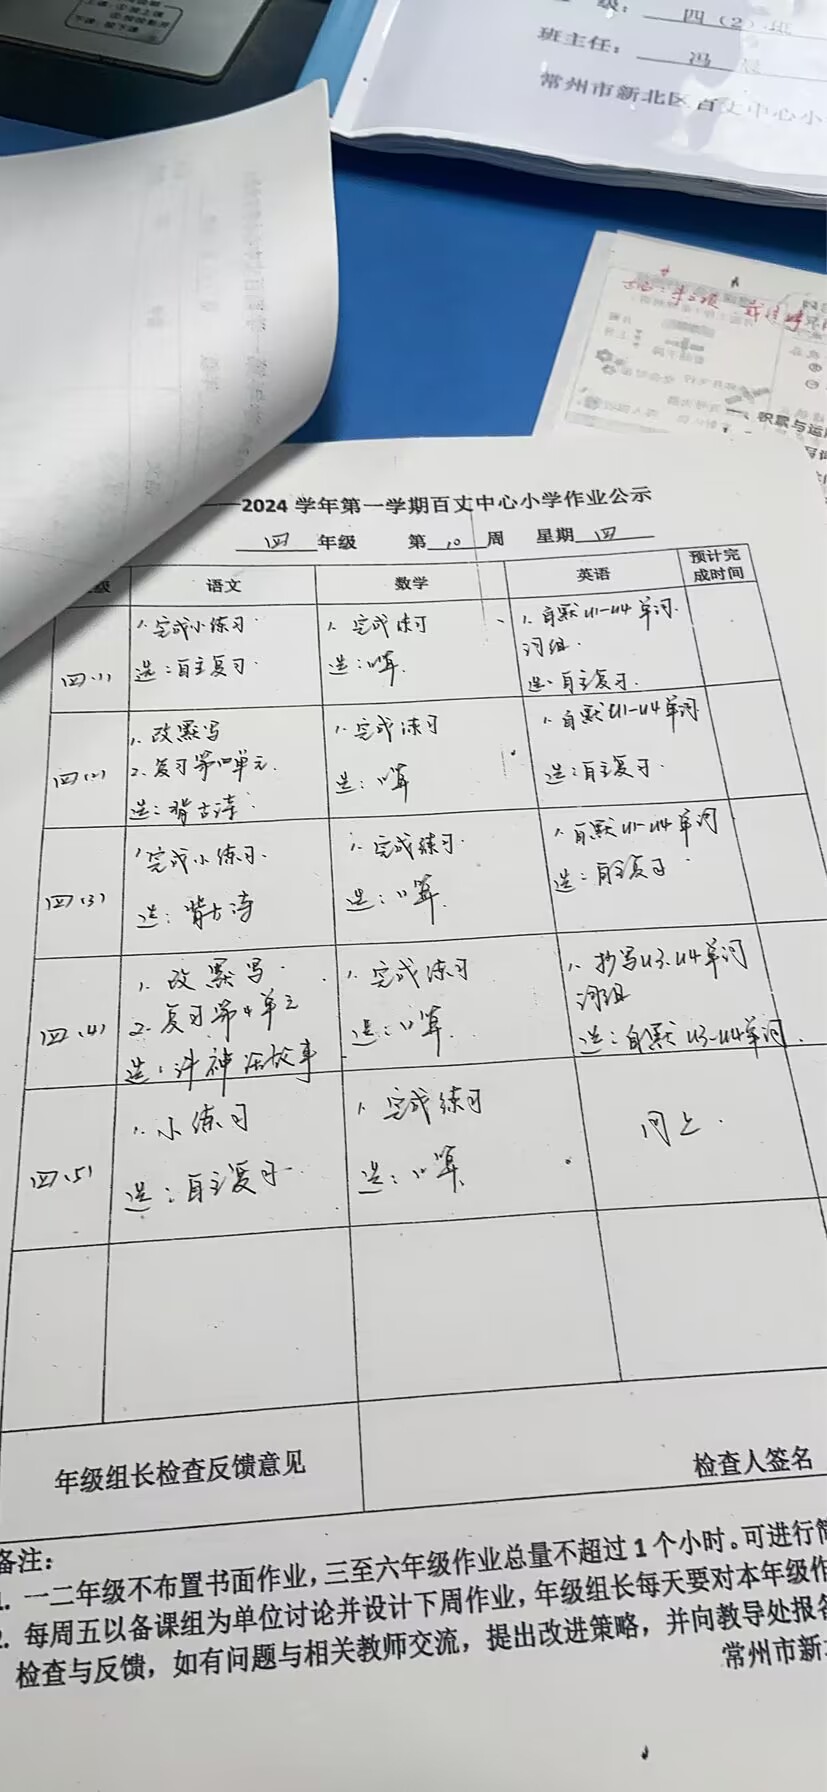 四（2）班
班主任： 冯
常州市新北区百丈中心小
积累与运
2024 学年第一学期百丈中心小学作业公示
四 年级 第 10 周 星期 四
级 语文 数学 英语 预计完成时间
四（1）
1. 完成小练习
选：自主复习.
1. 完成练习
选：口算.
1. 自默U1-U4单词.
词组.
选：自主复习.
四（2）
1. 改默写
2. 复习第四单元.
选：背古诗.
1. 完成练习
选：口算
1. 自默U1-U4单词
选：自主复习.
四（3）
1. 完成小练习.
选：背古诗
1. 完成练习.
选：口算.
1. 自默U1-U4单词
选：自主复习.
四（4）
1. 改默写.
2. 复习第4单元
选：讲神话故事
1. 完成练习
选：口算.
1. 抄写U3.U4单词
词组
选：自默U3-U4单词.
四（5）
1. 小练习
选：自主复习.
1. 完成练习
选：口算.
同上.
年级组长检查反馈意见
检查人签名
备注：
1. 一二年级不布置书面作业，三至六年级作业总量不超过 1 个小时。可进行
2. 每周五以备课组为单位讨论并设计下周作业，年级组长每天要对本年级作
检查与反馈，如有问题与相关教师交流，提出改进策略，并向教导处报备
常州市新